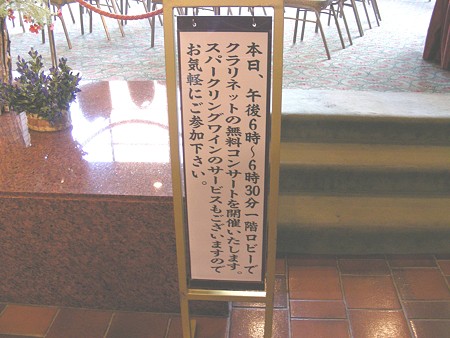 本日、午後6時～6時30分一階ロビーで
クラリネットの無料コンサートを開催いたします。
スパークリングワインのサービスもございますので
お気軽にご参加下さい。